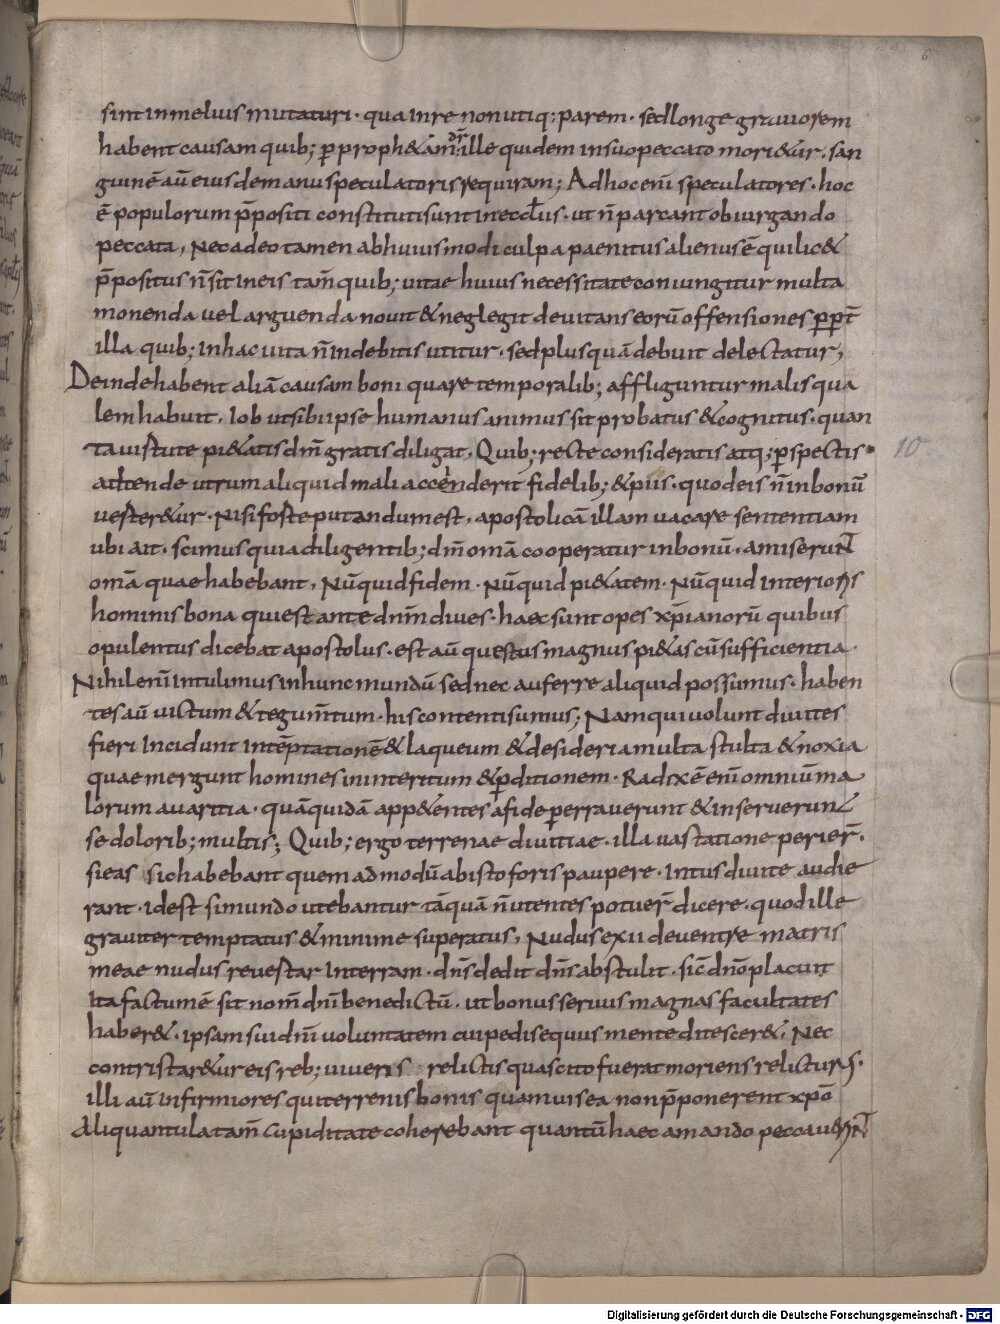 6
sint inmelius mutaturi · qua inre nonutiq; parem · sedlonge grauiorem
habent causam quib; ꝑ proph&am dr̄ ille quidem insuopeccato mori&ur · san
guinē aū eius demanu speculatoris requiram; Adhoc enī speculatores · hoc
ē populorum p̄positi constituti sunt inęccl̄iis · ut n̄ parcant obiurgando
peccata, Necadeo tamen abhuiusmodi culpa paenitus alienus ē quilic&
p̄positus n̄ sit ineis tam̄ quib; uitae huius necessitate coniungitur multa
monenda uel arguenda nouit & neglegit deuitans eorū offensiones ꝑꝑt̄
illa quib; inhac uita n̄ indebitis utitur · sedplus quā debuit delectatur,
Deinde habent aliā causam boni quare temporalib; affliguntur malis qua
lem habuit, Iob ut sibi ipse humanus animus sit probatus & cognitus · quan
ta uirtute pi&atis dm̄ gratis diligat, Quib; recte consideratis atq; ꝑspectis
10
attende utrum aliquid mali accenderit fidelib; & piis · quod eis n̄ inbonū
uerter&ur · Nisi forte putandum est, apostolicā illam uacare sententiam
ubi ait · scimus quia diligentib; dm̄ omā cooperatur inbonū · amiserunt
omā quae habebant, Nūquid fidem · Nūquid pi&atem · Nūquid interioris
hominis bona qui est ante dnm̄ diues · haec sunt opes xp̄ianorū quibus
opulentus dicebat apostolus · est aū questus magnus pi&as cū sufficientia ·
Nihil enī intulimus inhunc mundū sed nec auferre aliquid possumus · haben
tes aū uictum & tegum̄tum · his contenti sumus; Nam qui uolunt diuites
fieri incidunt intēptationē & laqueum & desideria multa stulta & noxia
quae mergunt homines ininteritum & ꝑditionem · Radix ē enī omniū ma
lorum auaritia · quā quidā app&entes afide ꝑerrauerunt & inseruerunt
se dolorib; multis; Quib; ergo terrenae diuitiae · illa uastatione perier̄ ·
si eas sic habebant quemadmodū abisto foris paupere · intus diuite audie
rant · id est si mundo utebantur tāquā n̄ utentes potuer̄ dicere · quod ille
grauiter temptatus & minime superatus, Nudus exii deuentre matris
meae nudus reuertar interram · dn̄s dedit dn̄s abstulit · sic̄ dn̄o placuit
ita factum ē sit nom̄ dn̄i benedictū · ut bonus seruus magnas facultates
haber& · ipsam sui dn̄i uoluntatem cui pedisequus mente ditescer& · Nec
contristar&ur eis reb; uiuens relictis quas cito fuerat moriens relicturus ·
illi aū infirmiores qui terrenis bonis quamuis ea non p̄ponerent xp̄o
Aliquantula tam̄ cupiditate coherebant quantū haec amando peccauerunt
Digitalisierung gefördert durch die Deutsche Forschungsgemeinschaft - DFG